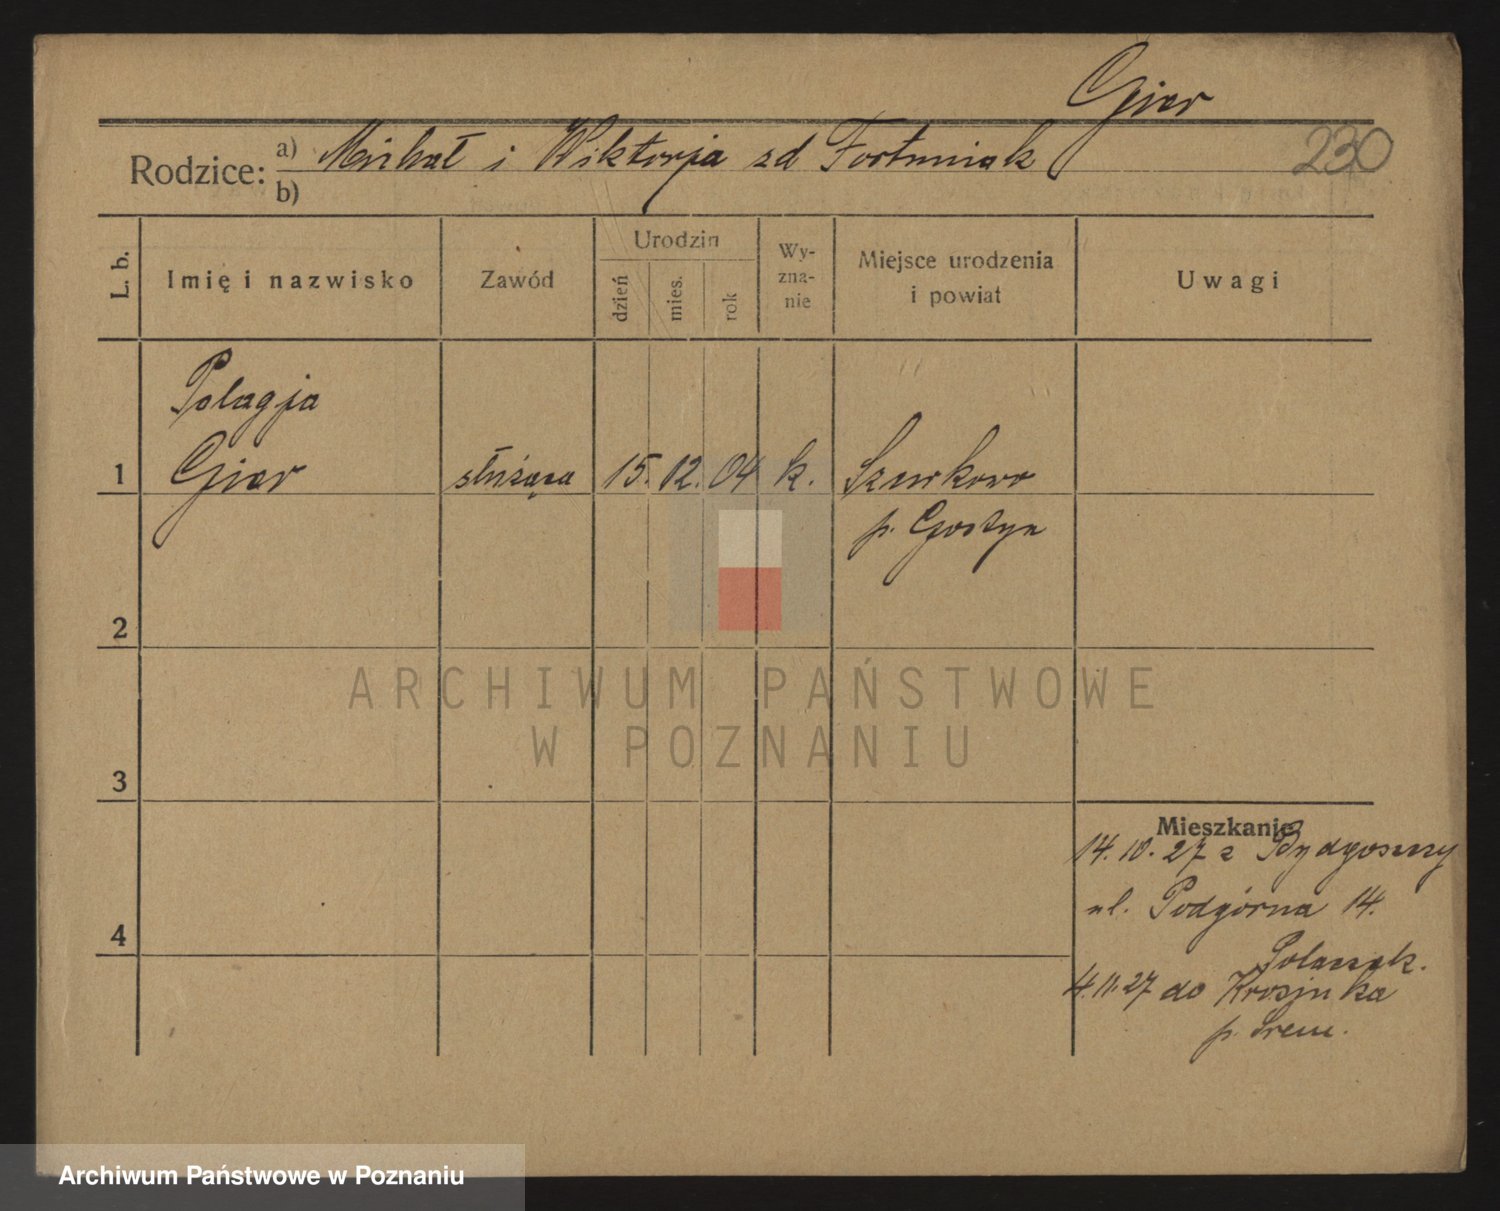 Gier
230
Rodzice: a) Michał i Wiktorja zd Fortuniak
b)
L. b.
Imię i nazwisko
Zawód
Urodzin
dzień
mies.
rok
Wy-
zna-
nie
Miejsce urodzenia
i powiat
Uwagi
Pelagja
1 Gier służąca 15. 12. 04 k. Szurkowo
p. Gostyn
2
3
4
Mieszkanie
14. 10. 27 z Bydgoszczy
ul. Podgórna 14.
Polaszek.
4.11.27 do Krosinka
p. Śrem.
ARCHIWUM PAŃSTWOWE
W POZNANIU
Archiwum Państwowe w Poznaniu